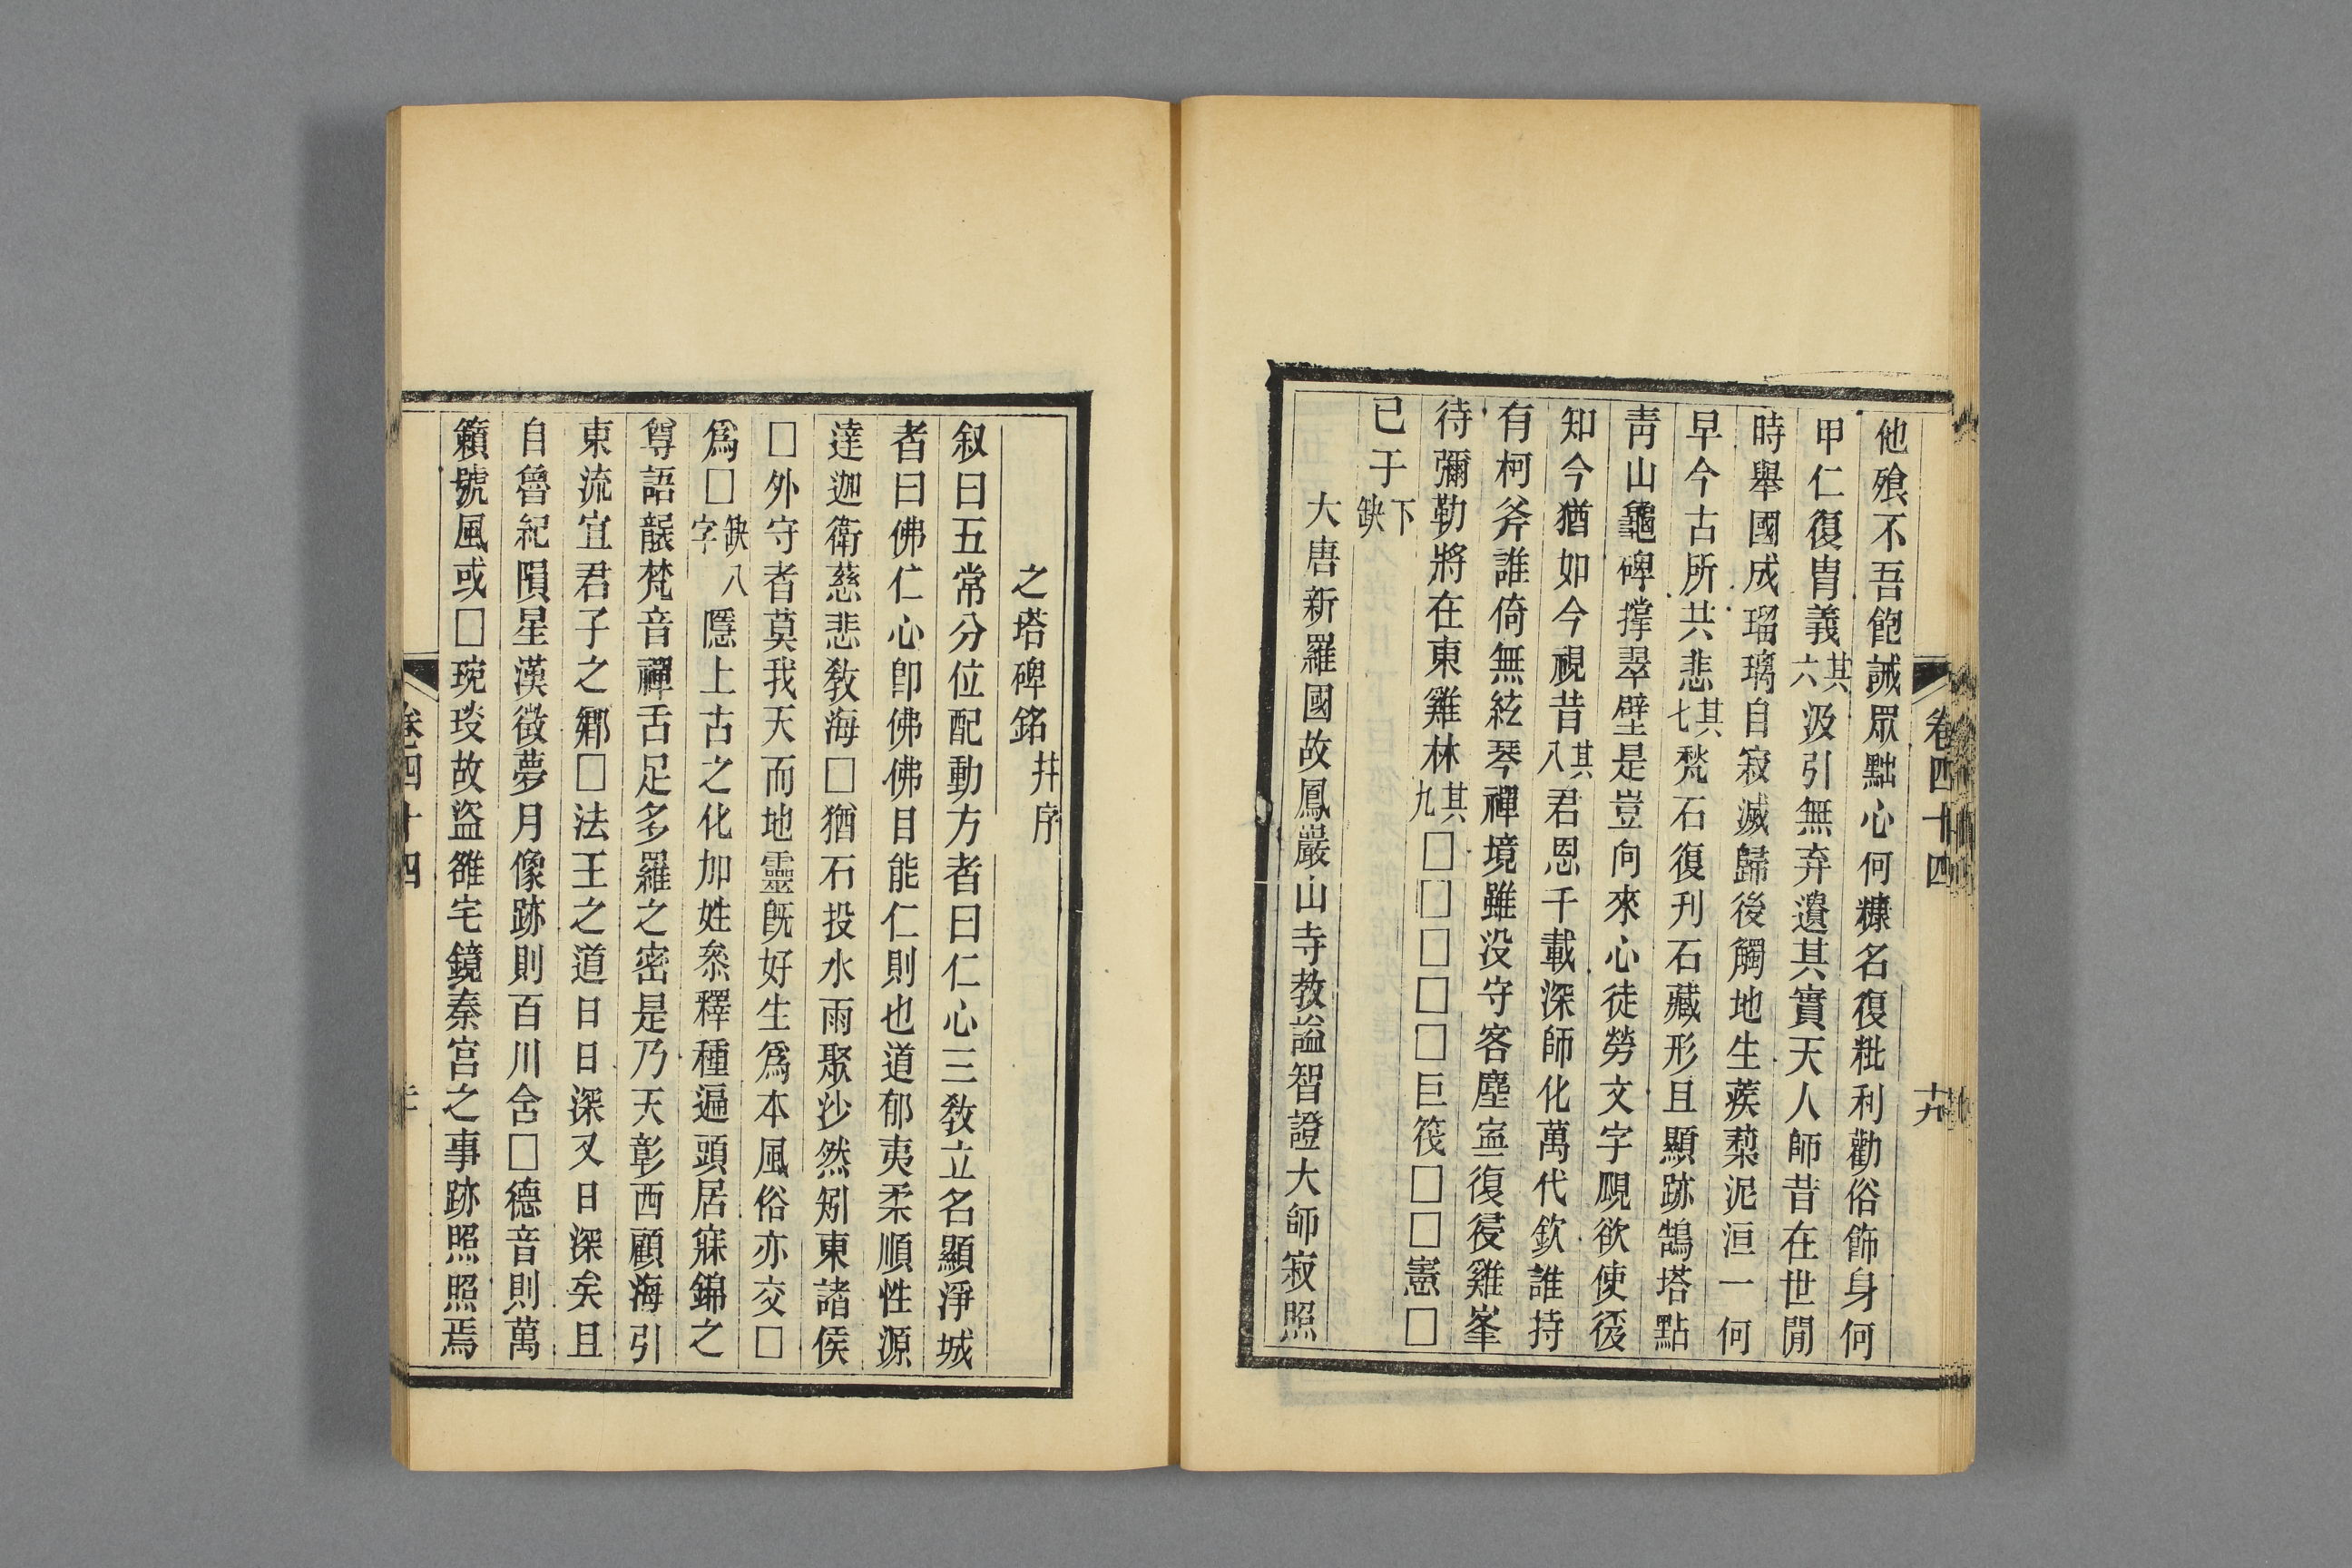 卷四十四
十九
他飱不吾飽誡眾黜心何糠名復粃利勸俗飾身何
甲仁復胄義其六汲引無弃遺其實天人師昔在世閒
時舉國成瑠璃自寂滅歸後觸地生蒺䔧泥洹一何
早今古所共悲其七甃石復刋石藏形且顯跡鵠塔點
靑山龜碑撐翠壁是豈向來心徒勞文字覛欲使後
知今猶如今視昔其八君恩千載深師化萬代欽誰持
有柯斧誰倚無絃琴禪境雖没守客塵寍復侵雞峯
待彌勒將在東雞林其九□□□□□巨筏□□憲□
已于下缺
大唐新羅國故鳳巖山寺教謚智證大師寂照
之塔碑銘并序
叙曰五常分位配動方者曰仁心三敎立名顯淨域
者曰佛仁心卽佛佛目能仁則也道郁夷柔順性源
達迦衛慈悲敎海□猶石投水雨聚沙然矧東諸侯
□外守者莫我天而地靈旣好生爲本風俗亦交□
爲□缺八字隱上古之化加姓叅釋種遍頭居寐錦之
尊語䫂梵音禪舌足多羅之密是乃天彰西顧海引
東流宜君子之鄕□法王之道日日深又日深矣且
自魯紀隕星漢徵夢月像跡則百川含□德音則萬
籟號風或□琬琰故盜雒宅鏡秦宫之事跡照照焉
卷四十四